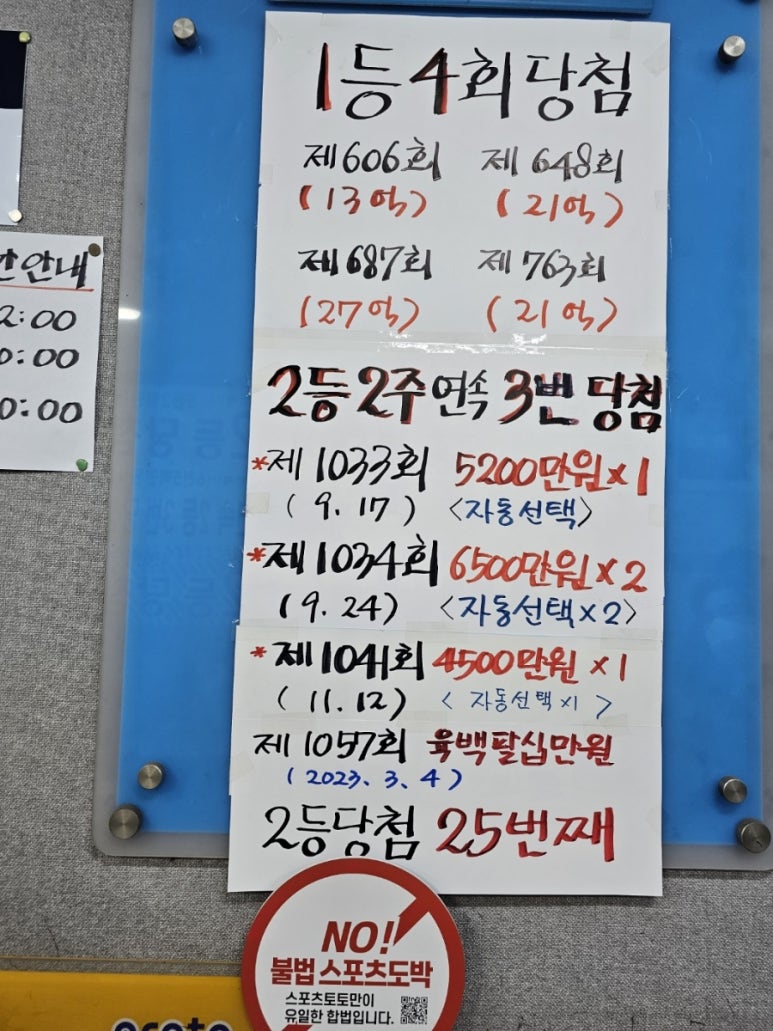 1등 4회 당첨
제606회 제648회
(13억) (21억)
제687회 제763회
(27억) (21억)
2등 2주 연속 3번 당첨
*제1033회 5200만원×1
(9.17) <자동선택>
*제1034회 6500만원×2
(9.24) <자동선택×2>
*제1041회 4500만원×1
(11.12) <자동선택×1>
제1057회 육백팔십만원
(2023.3.4)
2등당첨 25번째
안내
2:00
0:00
0:00
NO!
불법 스포츠도박
스포츠토토만이
유일한 합법입니다.